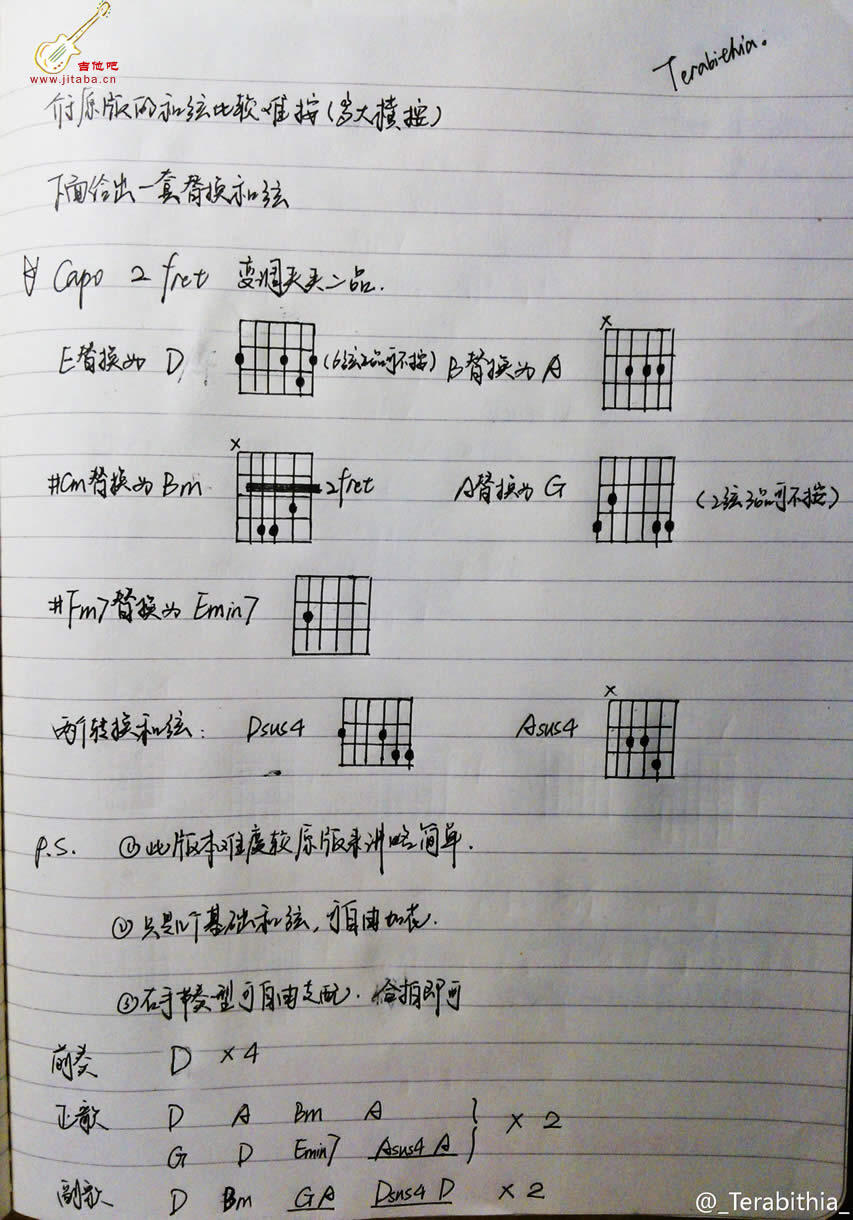 吉他吧
www.jitaba.cn
Terabithia.
介于原版的和弦比较难按(多大横按)
下面给出一套替换和弦
Capo 2 fret 变调夹夹二品.
E替换为 D (6弦2品可不按) B替换为 A
x
x
#Cm替换为 Bm 2fret A替换为 G (2弦3品可不按)
#Fm7替换为 Emin7
x
两个转换和弦: Dsus4 Asus4
P.S. ①此版本难度较原版来讲略简单.
②只是几个基础和弦,可自由加花.
③右手节奏型可自由支配. 合拍即可
前奏 D ×4
正歌 D A Bm A } × 2
G D Emin7 Asus4 A
副歌 D Bm G A Dsus4 D × 2
@_Terabithia_